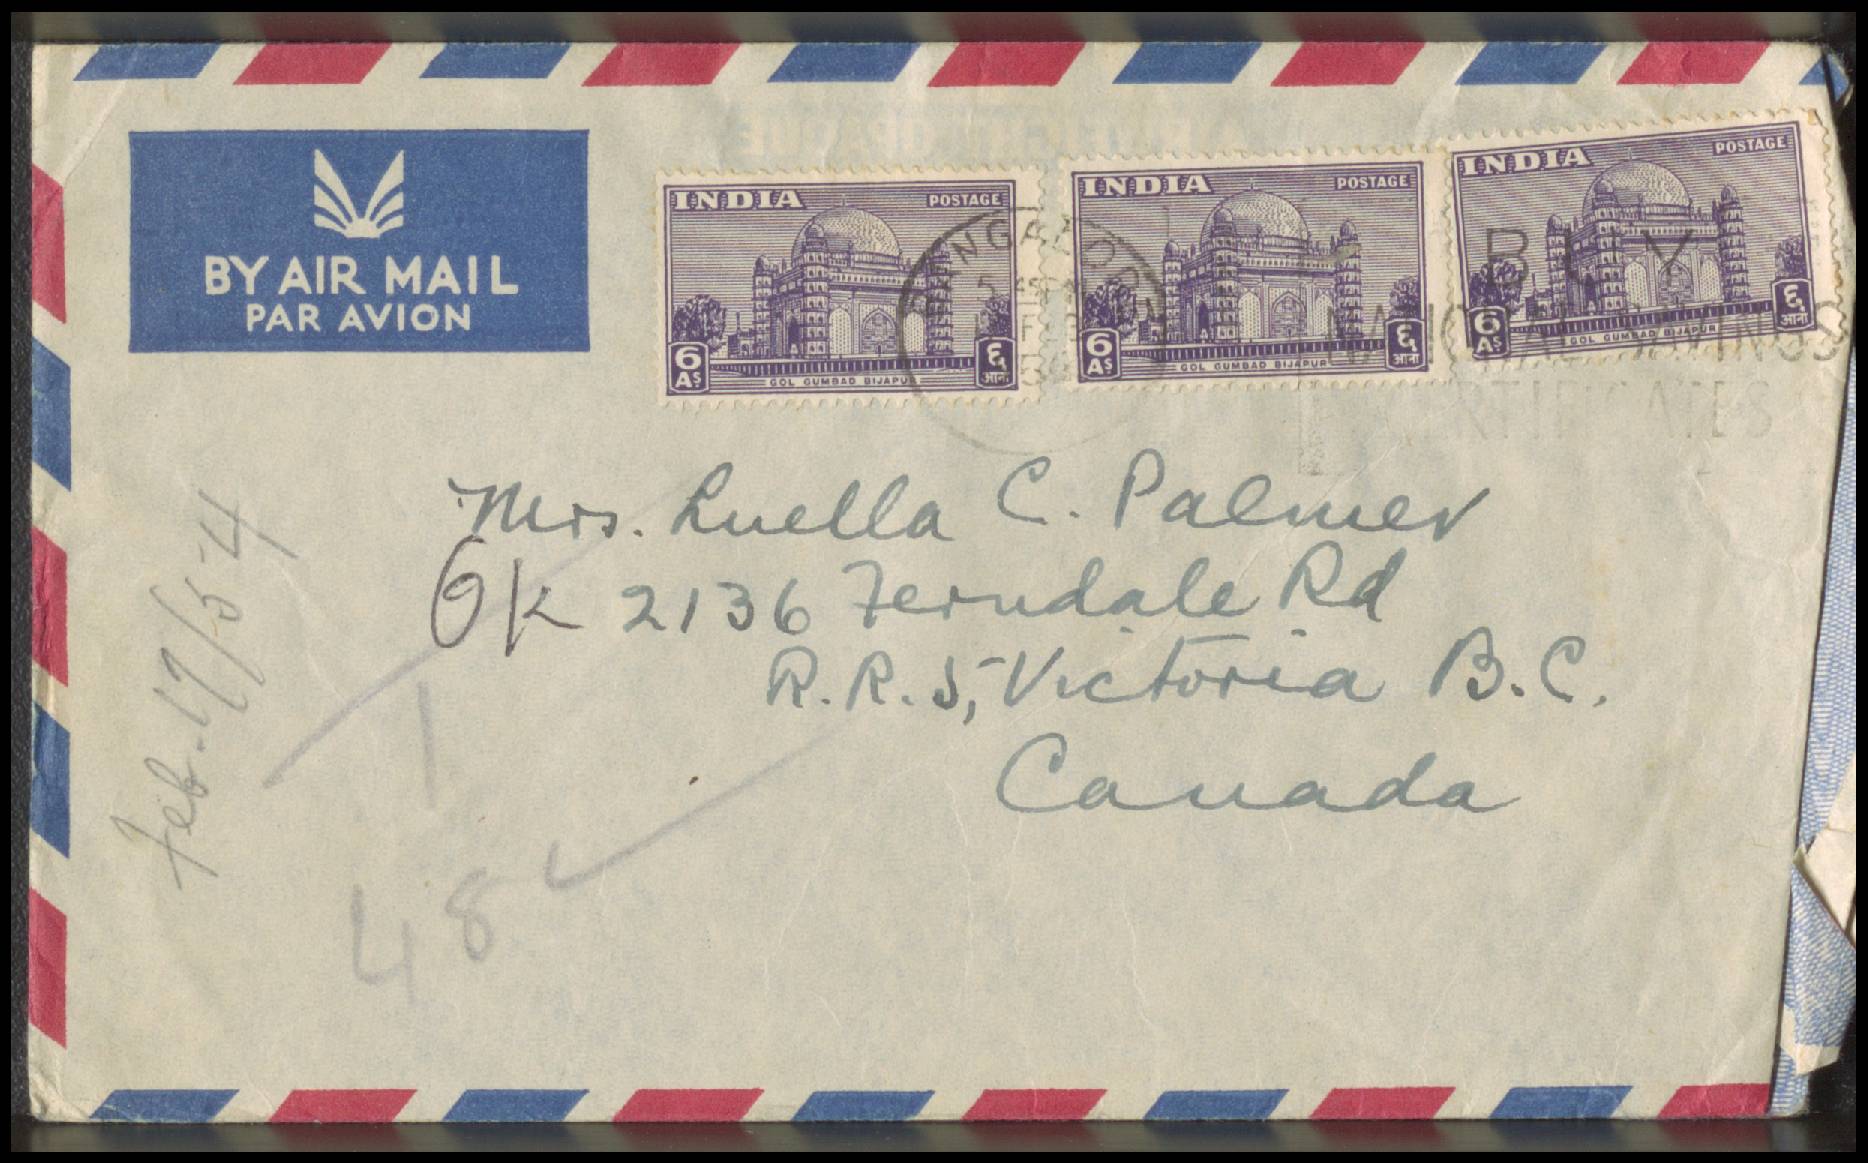 BY AIR MAIL
PAR AVION
INDIA POSTAGE
6 As ६ आना
GOL GUMBAD BIJAPUR
INDIA POSTAGE
6 As ६ आना
GOL GUMBAD BIJAPUR
INDIA POSTAGE
6 As ६ आना
GOL GUMBAD BIJAPUR
BANGALORE
BUY
NATIONAL SAVINGS
CERTIFICATES
Mrs. Luella C. Palmer
Ok 2136 Ferndale Rd
R.R. 5, Victoria B.C.
Canada
Feb. 19/54
1
48